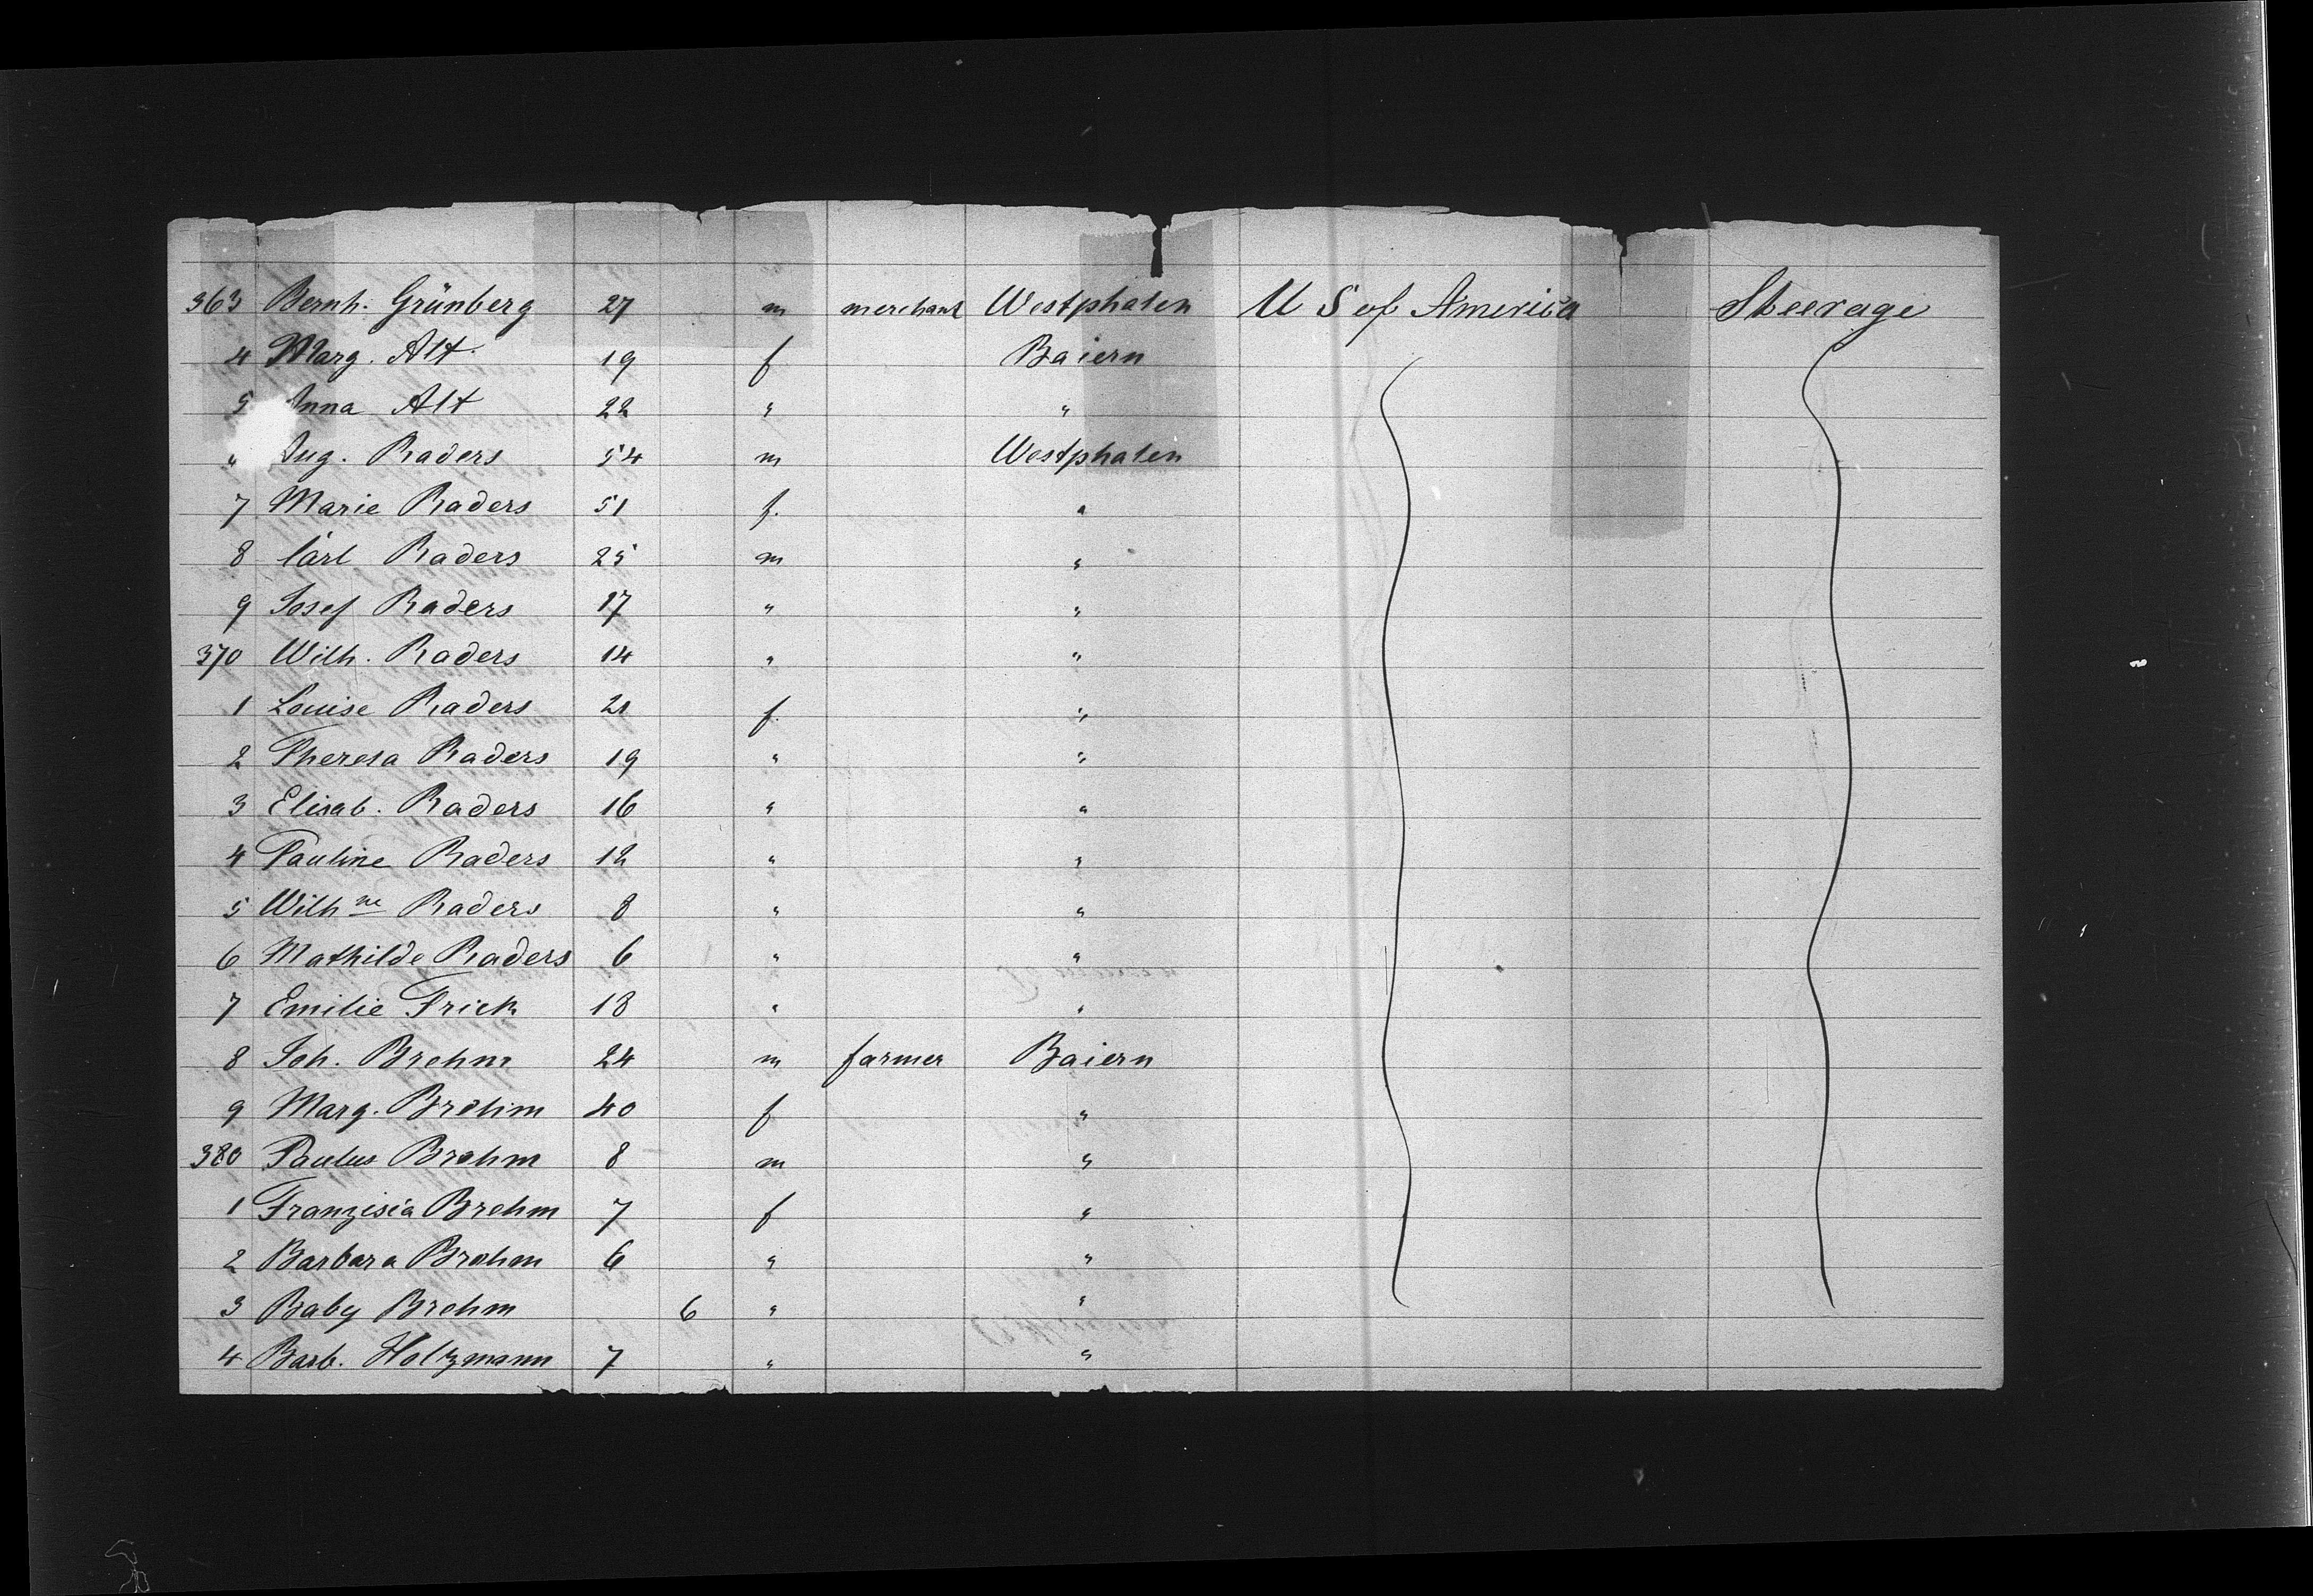 363 Bernh. Grünberg 27 m merchant Westphalen U S of America Steerage
4 Marg. Alt 19 f Baiern
5 Anna Alt 22 " "
6 Aug. Raders 54 m Westphalen
7 Marie Raders 51 f. "
8 Carl Raders 25 m "
9 Josef Raders 17 " "
370 Wilh. Raders 14 " "
1 Louise Raders 21 f. "
2 Theresa Raders 19 " "
3 Elisab. Raders 16 " "
4 Pauline Raders 12 " "
5 Wilhne Raders 8 " "
6 Mathilde Raders 6 " "
7 Emilie Frick 18 " "
8 Joh. Brehm 24 m farmer Baiern
9 Marg. Brehm 40 f "
380 Paulus Brehm 8 m "
1 Franzisia Brehm 7 f "
2 Barbara Brehm 6 " "
3 Baby Brehm 6 " "
4 Barb. Holzmann 7 " "